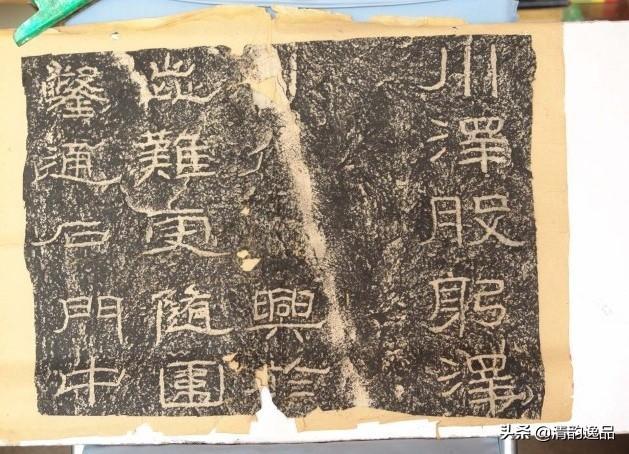 川澤股躬澤
興於
難更隨圍
鑿通石門中
头条 @清韵逸品